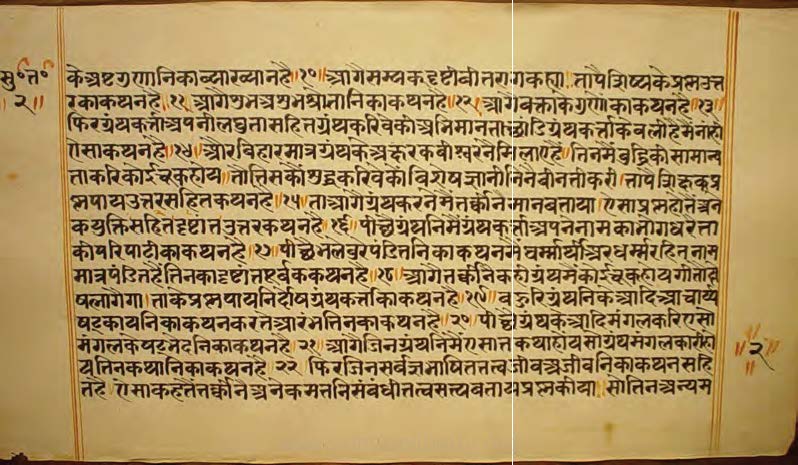 सु॰त॰
॥२॥
के अष्टगुणानिका व्याख्यान है॥१०॥ आगै सम्यकदृष्टी वीतराग कह्या। तापै शिष्यके प्रश्न उत्त
रका कथन है॥११॥ आगै शुभ अशुभ श्रोतानिका कथन है॥१२॥ आगै वक्ताके गुणाका कथन है॥१३॥
फिर ग्रंथकर्त्ता अपनी लघुता सहित ग्रंथ करिवेकी अभिमानता छांडि ग्रंथकर्त्ता केवली है मैं नाही
ऐसा कथन है॥१४॥ और विहार मात्र ग्रंथके अक्षर कवीश्वरनै मिलाए है॥ तिनमैं बुद्धिकी सामान्य
ता करि काई चूक होय॥ तौ तिसकौं शुद्ध करिवेकी विशेष ज्ञानीनि तै वीनती करी॥ तापै शिष्यके प्र
श्न पाय उत्तर सहित कथन है॥१५॥ ता आगै ग्रंथ करनेमै तर्क्कीनै मान बताया। ऐसा प्रश्न होतै अने
क युक्ति सहित दृष्टांत उत्तर कथन है॥१६॥ पीछै ग्रंथनिमैं ग्रंथकर्त्ता अपने नामका भोग धरै ता
की परिपाटीका कथन है॥१७॥ पीछै भले बुरे पंडितनिका कथनमैं धर्म्मार्थी अर धर्म्म रहित नाम
मात्र पंडित है तिनका दृष्टांत पूर्वक कथन है॥१८॥ आगै तर्क्कीनै कही ग्रंथमैं काई चूक होय गी तौ दो
ष लागैगा। ताके प्रश्न पाय निर्दोष ग्रंथकर्त्ताका कथन है॥१९॥ बहुरि ग्रंथनिके आदि आचार्य
षट कार्यनिका कथन करते आरंभे तिनका कथन है॥२०॥ पीछै ग्रंथके आदि मंगल करिए सो
मंगलके षट भेद तिनिका कथन है॥२१॥ आगै जिन ग्रंथनिमैं एसा न कथा होय सो ग्रंथ मंगलकारी हो
य तिन कथानिका कथन है॥२२॥ फिर जिन सर्वज्ञ भाषित तत्व जीव अजीवनिका कथन सहि
त है॥ ऐसा कहतै तर्क्कीनै अनेक मतनि संबंधी तत्व सत्य बताय प्रश्न कीया॥ सो तिन अन्य म
॥२॥